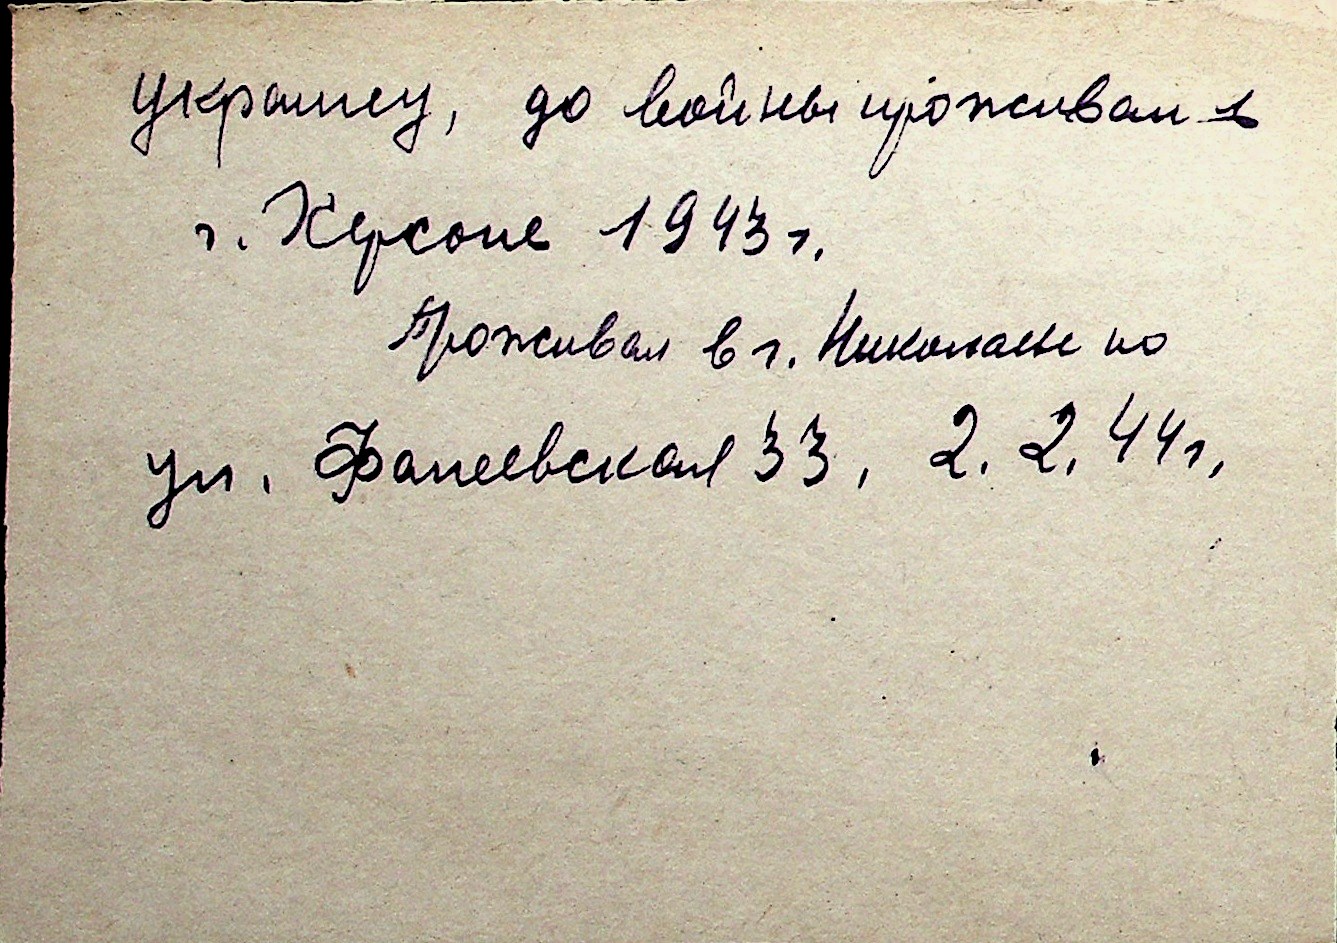 украинец, до войны проживал в
г. Херсоне 1943 г.
Проживал в г. Николаеве по
ул. Фалеевская 33, 2.2.44 г,